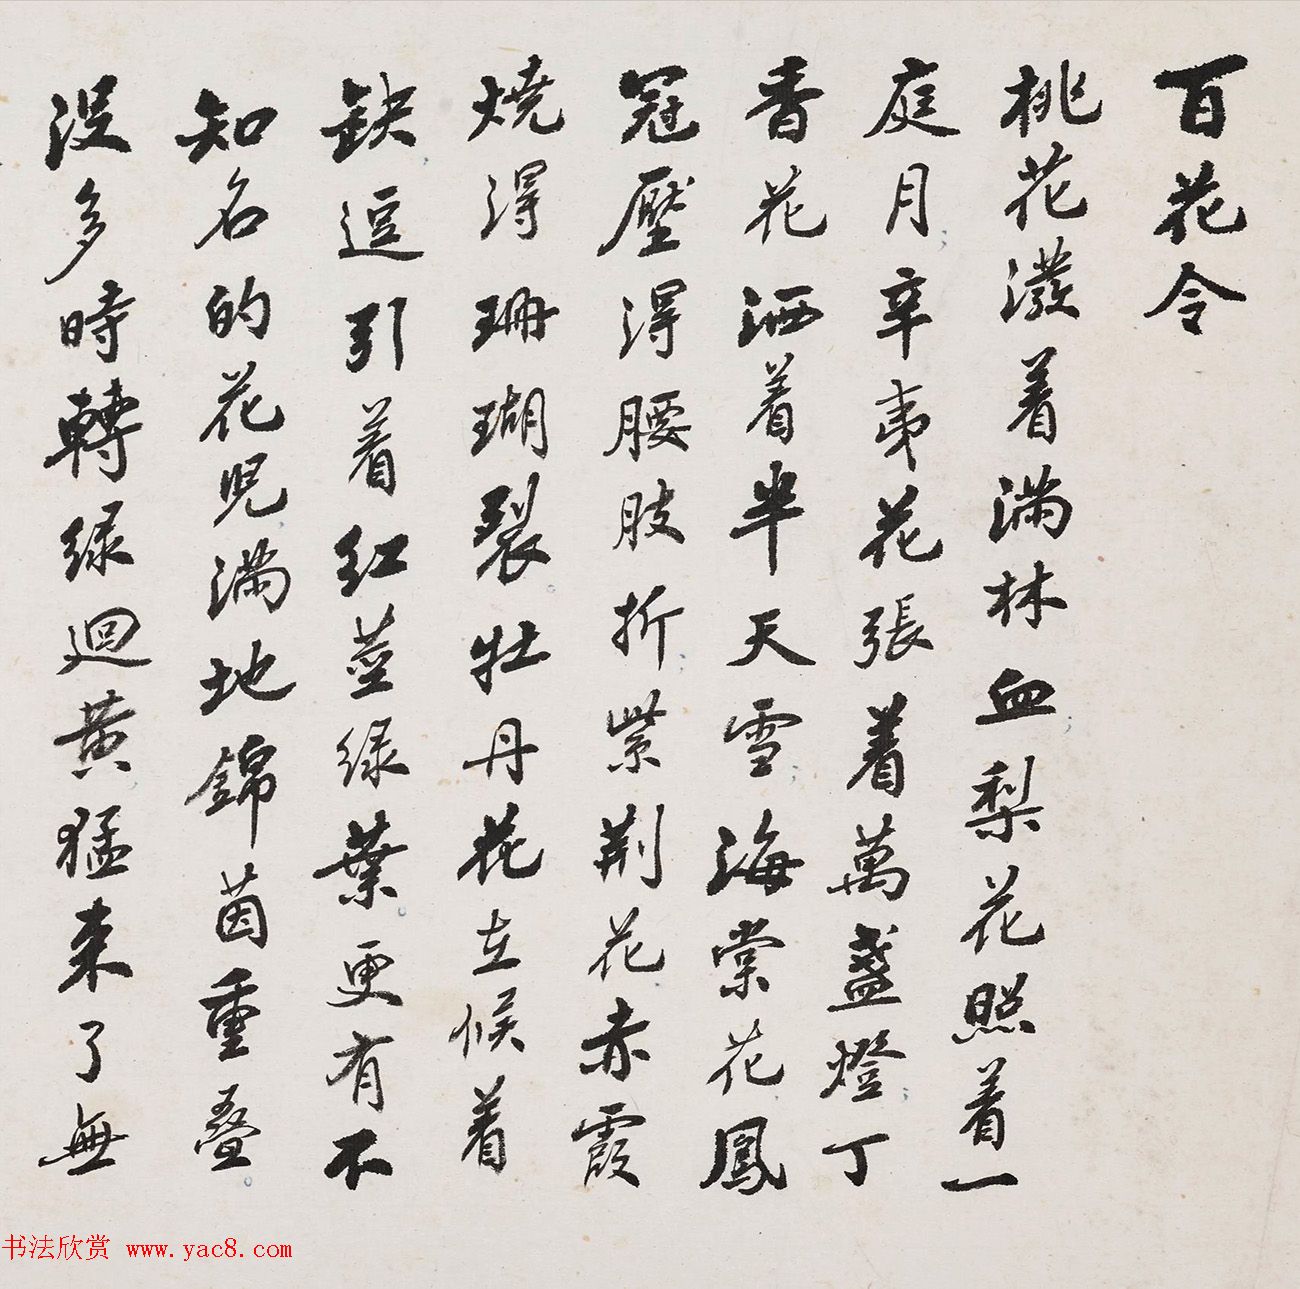 百花令
桃花潑着滿林血梨花照着一
庭月辛夷花張着萬盞燈丁
香花洒着半天雪海棠花鳳
冠壓得腰肢折紫荆花赤霞
燒得珊瑚裂牡丹花立候着
缺逗引着紅莖綠葉更有不
知名的花児滿地錦茵重疊
沒多時轉綠迴黃猛来了無
书法欣赏 www.yac8.com